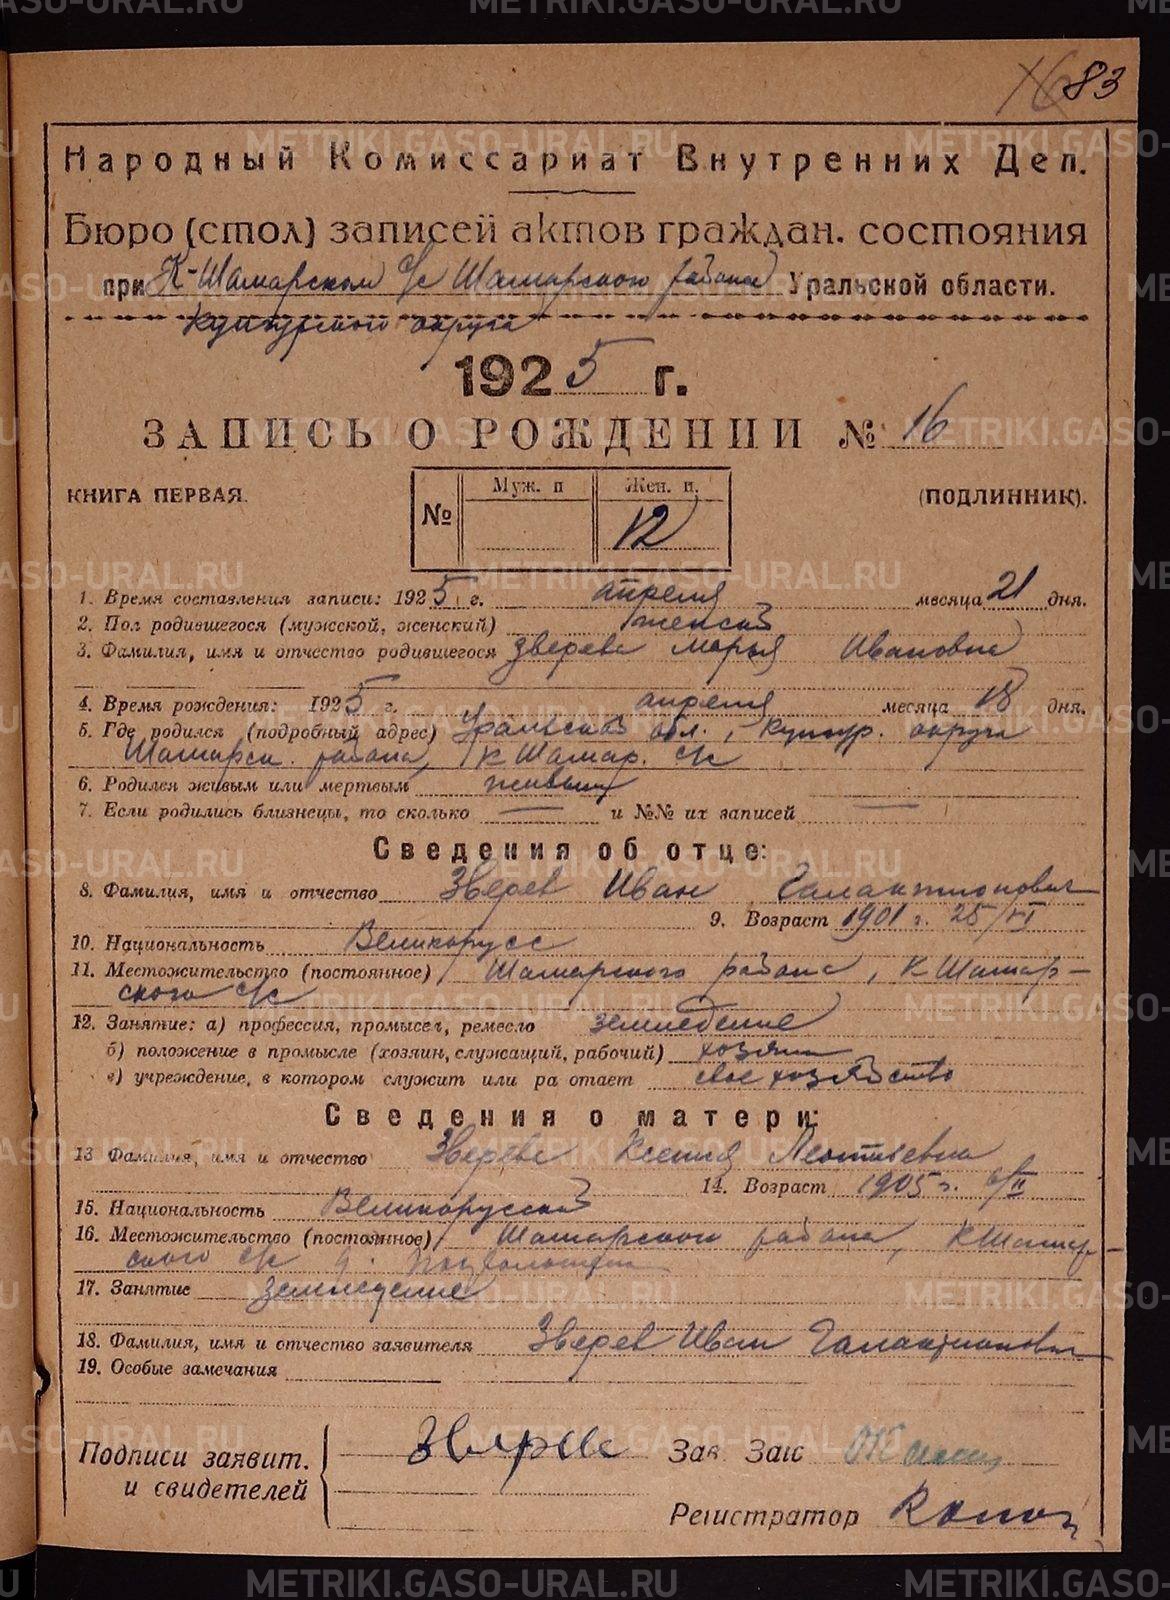 83
Народный Комиссариат Внутренних Дел.
Бюро (стол) записей актов граждан. состояния
при К-Шамарском с/с Шамарского района Уральской области.
Кунгурского округа
1925 г.
ЗАПИСЬ О РОЖДЕНИИ № 16
КНИГА ПЕРВАЯ. (ПОДЛИННИК).
№ Муж. п Жен. п.
12
1. Время составления записи: 1925 г. апреля месяца 21 дня.
2. Пол родившегося (мужской, женский) женский
3. Фамилия, имя и отчество родившегося Зверева Марья Ивановна
4. Время рождения: 1925 г. апреля месяца 18 дня.
5. Где родился (подробный адрес) Уральской обл., Кунгур. округа
Шамарск. района, К Шамар. с/с
6. Родился живым или мертвым живым
7. Если родились близнецы, то сколько — и №№ их записей —
Сведения об отце:
8. Фамилия, имя и отчество Зверев Иван Галактионович
9. Возраст 1901 г. 25/VI
10. Национальность Великорусс
11. Местожительство (постоянное) Шамарского района, К Шамар-
ского с/с
12. Занятие: а) профессия, промысел, ремесло земледелие
б) положение в промысле (хозяин, служащий, рабочий) хозяин
в) учреждение, в котором служит или ра отает свое хозяйство
Сведения о матери:
13 Фамилия, имя и отчество Зверева Ксения Леонтьевна
14. Возраст 1905 г. /II
15. Национальность Великорусской
16. Местожительство (постоянное) Шамарского района, К Шамар-
ского с/с
17. Занятие Земледелие
18. Фамилия, имя и отчество заявителя Зверев Иван Галактионович
19. Особые замечания
Подписи заявит. и свидетелей Зверев Зав Загс
Регистратор
METRIKI.GASO-URAL.RU